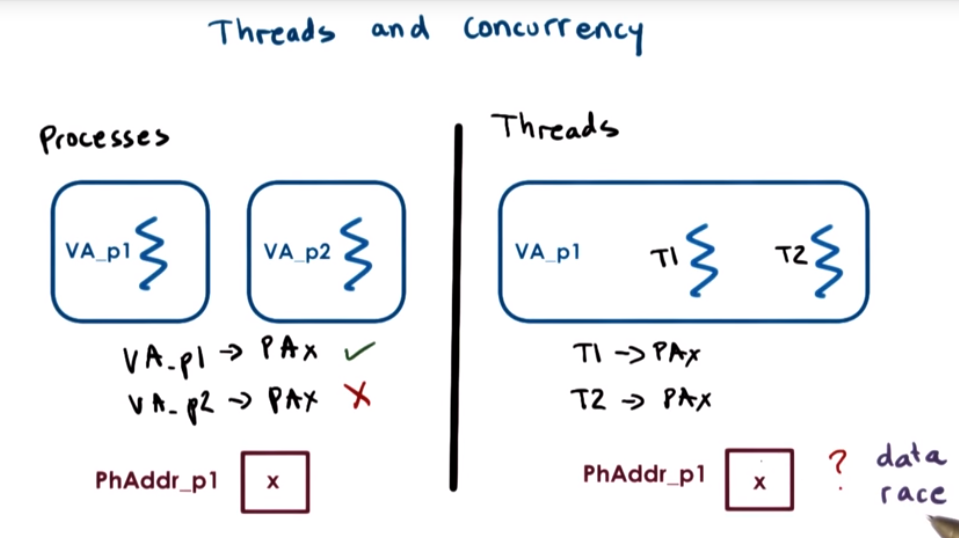 Threads and Concurrency
Processes
VA_p1
VA_p2
VA-p1 → PAx ✓
VA-p2 → PAX X
PhAddr_p1
x
Threads
VA_p1
T1
T2
T1 → PAX
T2 → PAX
PhAddr_p1
x
?
data
race